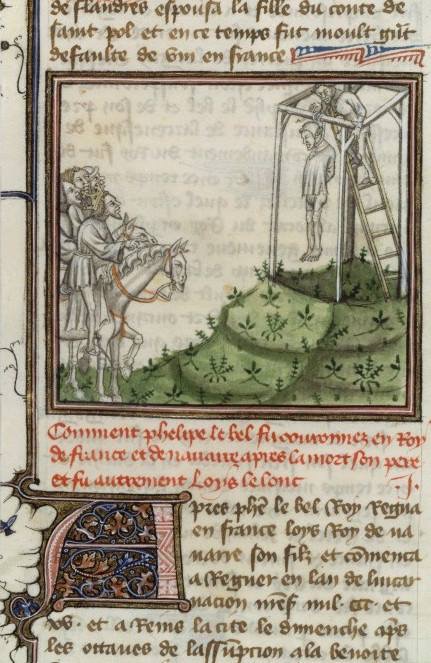 de flandres espousa la fille du conte de
saint pol et en ce temps fut moult grāt
defaulte de vin en france
Comment phelipe le bel fu couronnez en Roy
de france et de nauarre apres la mort son pere
et fu autrement Loys le lonc
.j.
Apres phe le bel Roy Regna
en france loys Roy de na
uarre son filz et cōmenca
a Regner en lan de lincar
nacion nr̄e mil. ccc. et
xv. et a Reins la cite le dimenche ap̄s
les octaues de lassūption a la benoite